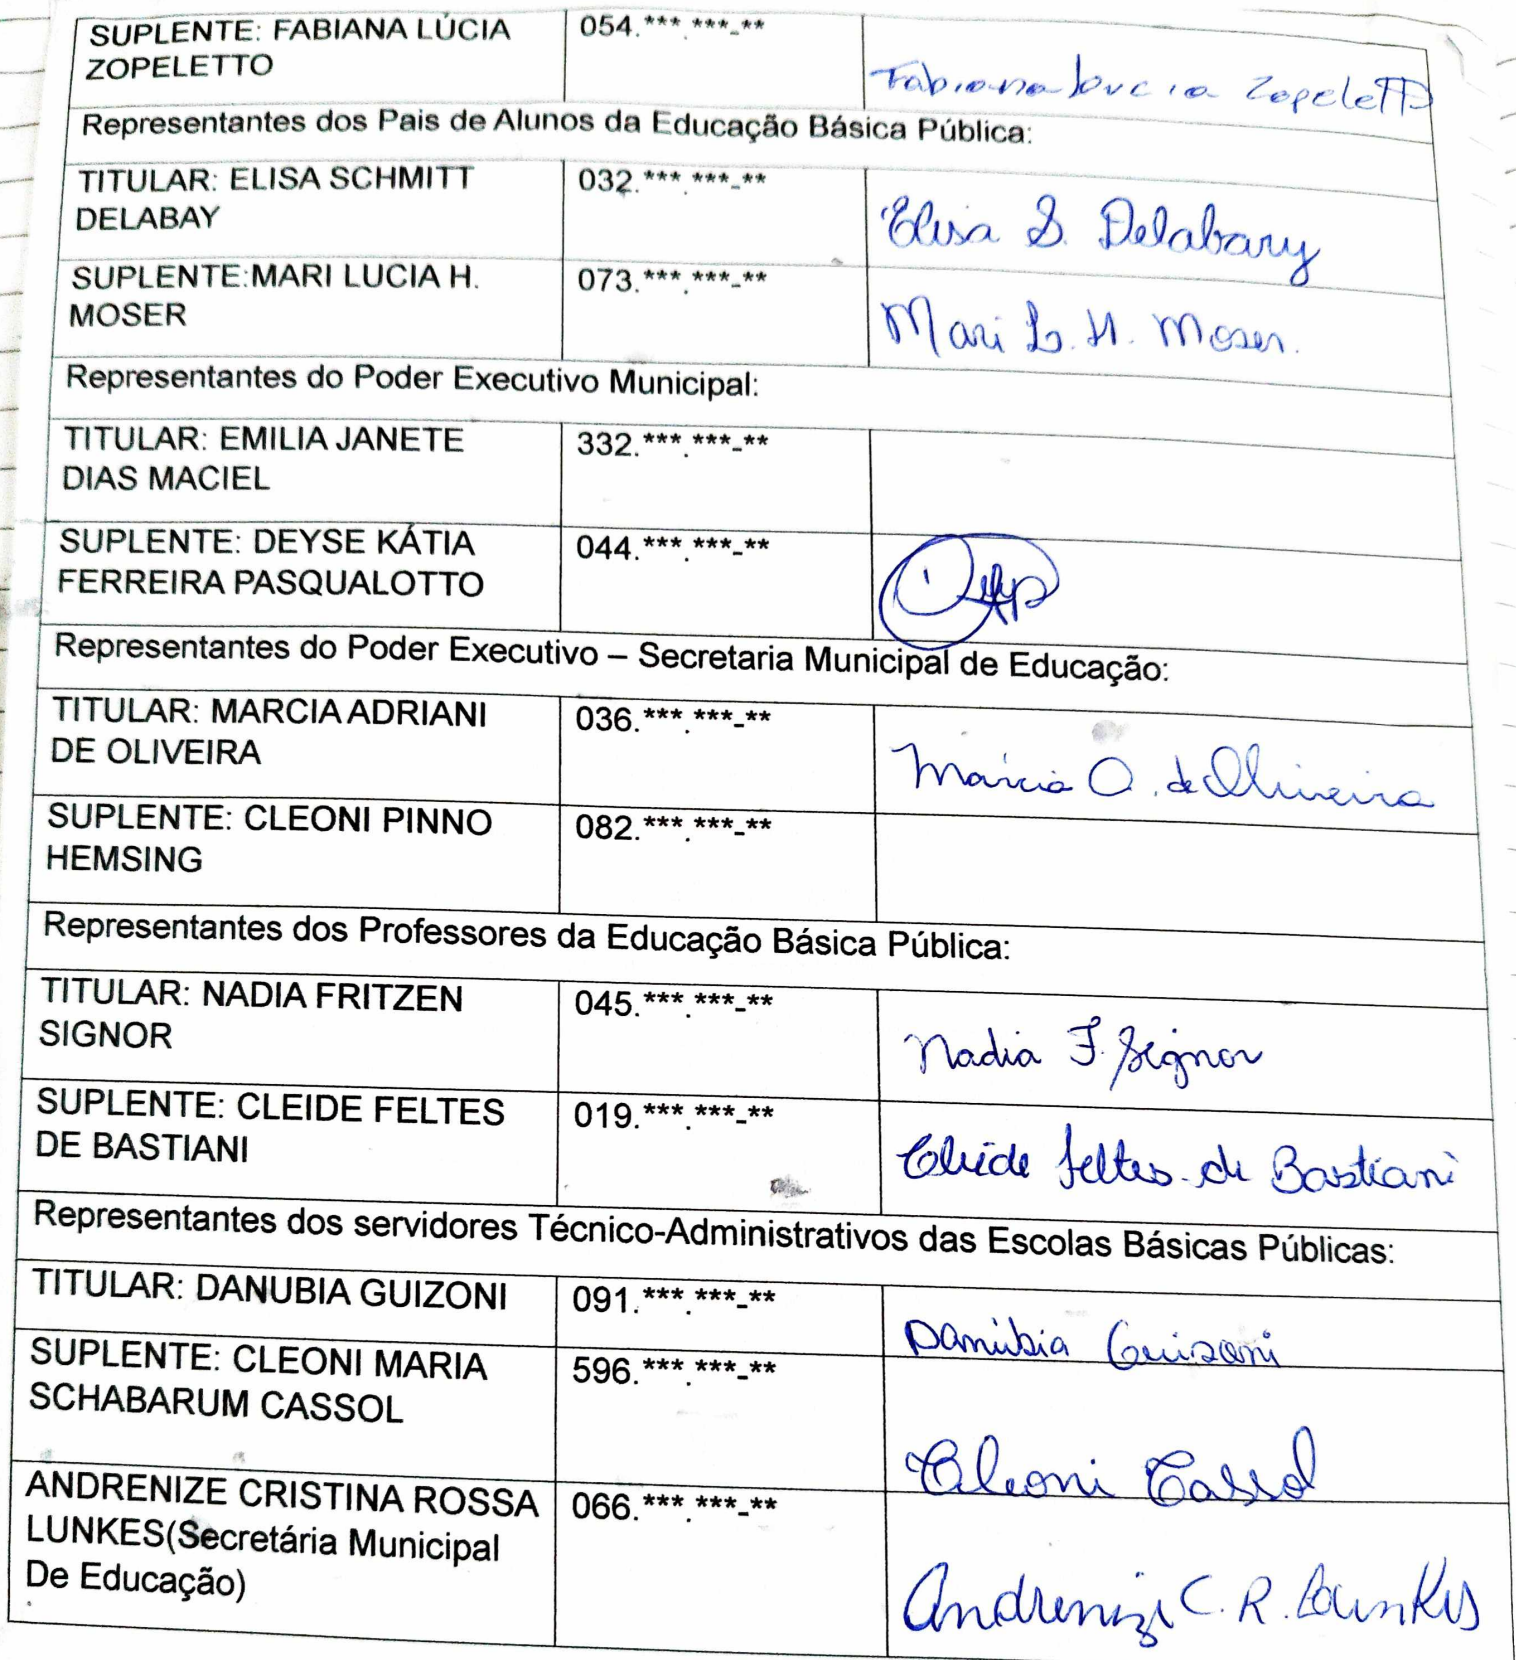 SUPLENTE: FABIANA LÚCIA
ZOPELETTO
054.***.***-**
Fabiana Lucia Zopeletto
Representantes dos Pais de Alunos da Educação Básica Pública:
TITULAR: ELISA SCHMITT
DELABAY
032.***.***-**
Elisa S. Delabary
SUPLENTE:MARI LUCIA H.
MOSER
073.***.***-**
Mari L. H. Moser.
Representantes do Poder Executivo Municipal:
TITULAR: EMILIA JANETE
DIAS MACIEL
332.***.***-**
SUPLENTE: DEYSE KÁTIA
FERREIRA PASQUALOTTO
044.***.***-**
Representantes do Poder Executivo – Secretaria Municipal de Educação:
TITULAR: MARCIA ADRIANI
DE OLIVEIRA
036.***.***-**
Marcia A. de Oliveira
SUPLENTE: CLEONI PINNO
HEMSING
082.***.***-**
Representantes dos Professores da Educação Básica Pública:
TITULAR: NADIA FRITZEN
SIGNOR
045.***.***-**
Nadia F. Signor
SUPLENTE: CLEIDE FELTES
DE BASTIANI
019.***.***-**
Cleide Feltes de Bastiani
Representantes dos servidores Técnico-Administrativos das Escolas Básicas Públicas:
TITULAR: DANUBIA GUIZONI
091.***.***-**
Danúbia Guizoni
SUPLENTE: CLEONI MARIA
SCHABARUM CASSOL
596.***.***-**
Cleoni Cassol
ANDRENIZE CRISTINA ROSSA
LUNKES(Secretária Municipal
De Educação)
066.***.***-**
Andrenize C. R. Lunkes